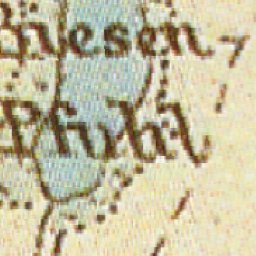 Riesen
Pfuhl